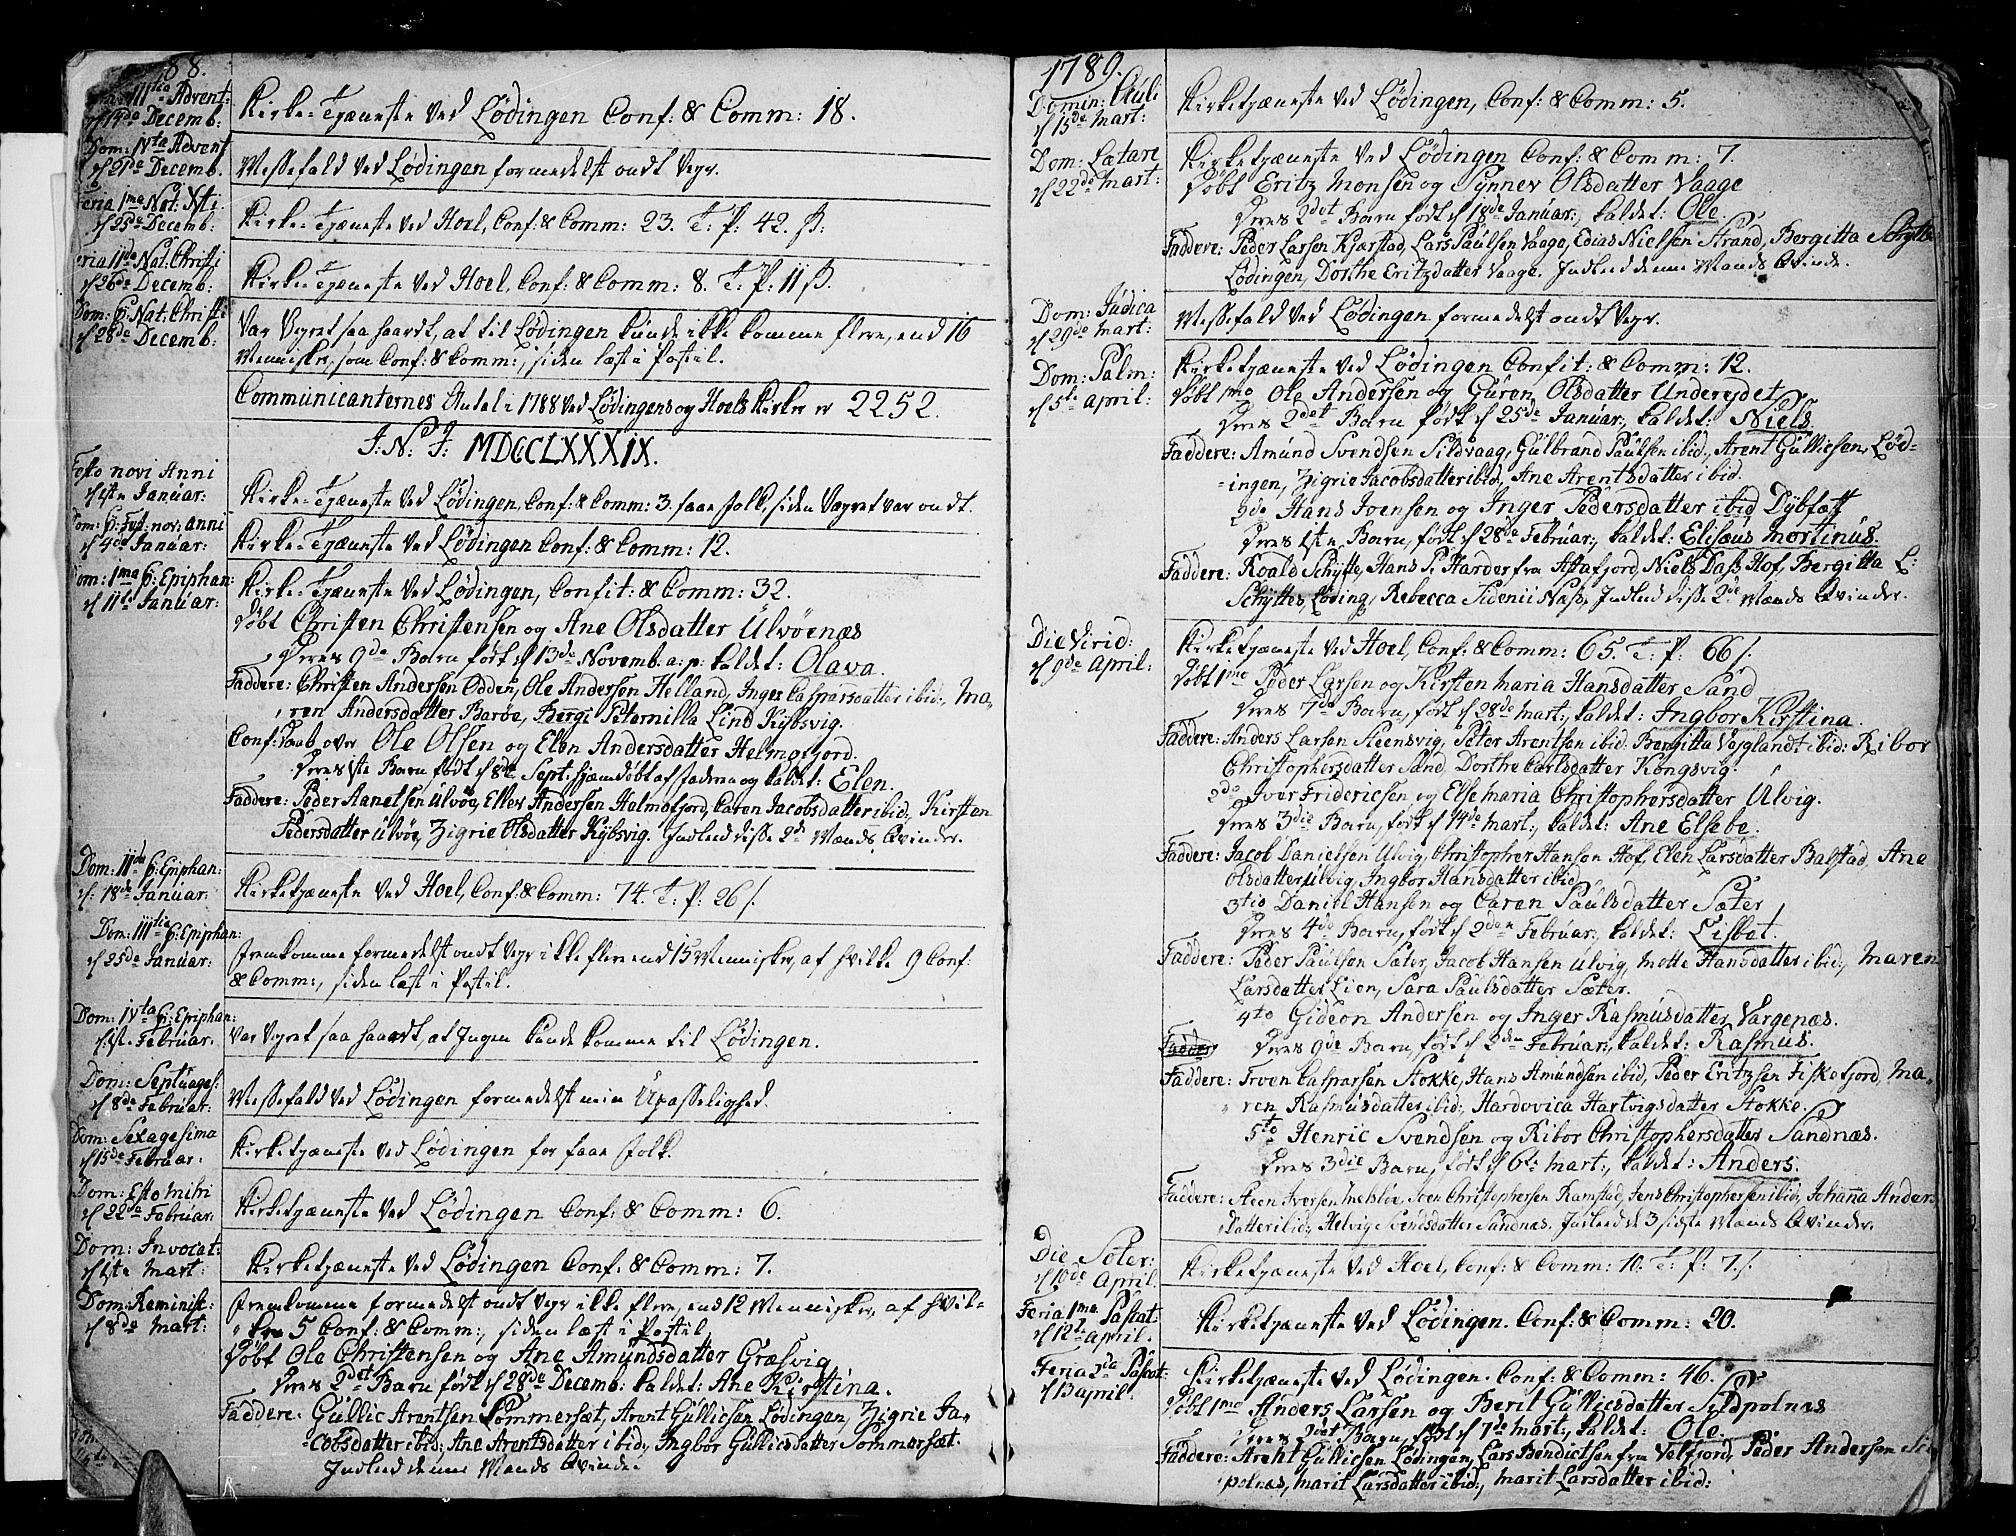 88.
Dom: IIItia Advent:
d 14de Decemb:
Kirke-Tjæneste ved Lødingen Conf: & Comm: 18.
Dom: IVta Advent
d 21de Decemb.
Messefald ved Lødingen formedelst ondt Veyr.
Feria 1ma Nat: Xti.
d 25de Decemb:
Kirke-Tjæneste ved Hoel, Conf: & Comm: 23. T: P: 42. ß:
Feria IIda Nat: Christi
d 26de Decemb:
Kirke-Tjæneste ved Hoel, Conf: & Comm: 8. T: P: 11 ß.
Dom: P: Nat: Christi
d 28de Decemb:
Var Veyret saa haardt, at til Lødingen kunde ikke komme flere, end 16
Mennisker, som Conf: & Comm:, siden læst i Postil.
Communicanternes Antal i 1788 ved Lødingens og Hoels Kirker er 2252.
I: N: J: MDCCLXXXIX.
Festo novi Anni
d 1ste Januar:
Kirke-Tjæneste ved Lødingen, Conf: & Comm: 3. faae folk, siden Veyret var ondt.
Dom: P: Fest: nov: anni
d 4de Januar:
Kirke-Tjæneste ved Lødingen Conf: & Comm: 12.
Dom: 1ma P: Epiphan:
d 11te Januar:
Kirke-Tjæneste ved Lødingen, Confit: & Comm: 32.
Døbt Christen Christensen og Ane Olsdatter Ulvøenæs
Deres 9de Barn født d 13de Novemb. a: p: kaldet: Olava.
Faddere: Christen Andersen Odden, Ole Andersen Helland, Inger Casparsdatter ibid:, Ma-
ren Andersdatter Barøe, Bergi Peternilla Lind Kybsvig.
Conf: Daab over Ole Olsen og Elen Andersdatter Helmofjord.
Deres 1ste Barn født d 8de Sept: hjemdøbt af faderen og kaldet: Elen.
Faddere: Peder Aanetsen Ulvøe, Ellev Andersen Helmofjord, Caren Jacobsdatter ibid:, Kirsten
Pedersdatter Ulvøe, Zigrie Olsdatter Kybsvig. Indled disse 2de Mænds Qvinder.
Dom: IIda P: Epiphan:
d: 18de Januar:
Kirketjæneste ved Hoel, Conf: & Comm: 74. T: P: 26 ß.
Dom: IIItia P: Epiphan:
d 25de Januar:
Fremkomme formedelst ondt Veyr ikke flere end 15 Mennisker, af hvilke 9 Conf:
& Comm:, siden læst i Postil.
Dom: IVta P: Epiphan:
d 1ste Februar:
Var Veyret saa haardt, at Ingen kunde komme til Lødingen.
Dom: Septuages:
d 8de Februar:
Messefald ved Lødingen formedelst min Upasselighed.
Dom: Sexagesima
d 15de Februar.
Kirketjæneste ved Lødingen for faae folk.
Dom: Esto Mihi
d 22de Februar:
Kirketjæneste ved Lødingen Conf: & Comm: 6.
Dom: Invocat:
d 1ste Mart:
Kirketjæneste ved Lødingen Conf: & Comm: 7.
Dom: Reminisc:
d 8de Mart:
Fremkomme formedelst ondt Veyr ikke flere, end 12 Mennisker, af hvil-
ke 5 Conf: & Comm:, siden læst i Postil.
Døbt Ole Christensen og Ane Amundsdatter Græsvig
Deres 2det Barn født d 28de Decemb: kaldet: Ane Kirstina.
Faddere: Gullic Arentsen Sommersæt, Arent Gullicsen Lødingen, Zigrie Ja-
cobsdatter ibid:, Ane Arentsdatter ibid:, Ingbor Gullicsdatter Sommersæt.
Indled denne Mands Qvinde.
1789.
Domin: Oculi
d 15de Mart:
Kirketjæneste ved Lødingen, Conf: & Comm: 5.
Dom: Lætare
d 22de Mart:
Kirketjæneste ved Lødingen Conf: & Comm: 7.
Døbt Eritz Monsen og Synnev Olsdatter Vaage
Deres 2det Barn født d 18de Januar:, kaldet: Ole.
Faddere: Peder Larsen Kjærstad, Lars Paulsen Vaage, Edias Nielsen Strand, Bergitta Schytte
Lødingen, Dorthe Eritzdatter Vaage. Indled denne Mands Qvinde.
Dom: Judica
d 29de Mart:
Messefald ved Lødingen formedelst ondt Veyr.
Dom: Palm:
d 5te April:
Kirketjæneste ved Lødingen Confit: & Comm: 12.
Døbt 1mo Ole Andersen og Guren Olsdatter Undereydet
Deres 2det Barn født d 25de Januar:, kaldet: Niels.
Faddere: Amund Svendsen Sildvaag, Gulbrand Paulsen ibid:, Arent Gullicsen Lød-
ingen, Zigrie Jacobsdatter ibid, Ane Arentsdatter ibid.
2do Hans Joensen og Inger Pedersdatter ibid Dybfæst
Deres 1ste Barn, født d 28de Februar:, kaldet: Elisæus Mortinus.
Faddere: Roald Schytte, Hans P: Harder fra Astafjord, Niels Dass Hof, Bergitta L:
Schyttes Løding, Rebecca Sidenii Næss, Indled disse 2de Mænds Qvinder.
Die Virid:
d 9de April:
Kirketjæneste ved Hoel, Conf: & Comm: 65. T: P: 66 ß.
Døbt 1mo Peder Larsen og Kirsten Maria Hansdatter Sand
Deres 7de Barn, født d 28de Mart:, kaldet: Ingbor Kirstina.
Faddere: Anders Larsen Steensvig, Peter Arentsen ibid: Bergitta Veyglandt ibid: Ribor
Christophersdatter Sand, Dorthe Carlsdatter Kongsvig.
2do Iver Fridericsen og Else Maria Christophersdatter Ulvig.
Deres 3die Barn, født d 14de Mart:, kaldet: Ane Elsebe.
Faddere: Jacob Danielsen Ulvig, Christopher Hansen Hof, Elen Larsdatter Balstad, Ane
Olsdatter Ulvig, Ingbor Hansdatter ibid
3tio Daniel Hansen og Caren Paulsdatter Sæter
Deres 4de Barn, født d 2den Februar:, kaldet: Lisbet.
Faddere: Peder Paulsen Sæter, Jacob Hansen Ulvig, Motte Hansdatter ibid:, Maren
Larsdatter Lien, Sara Paulsdatter Sæter.
4to Gideon Andersen og Inger Rasmusdatter Vargenæs.
Deres 9de Barn, født d 2den Februar:, kaldet: Rasmus.
Faddere: Irven Casparsen Stokke, Hans Amundsen ibid, Peder Eritzsen Fiskefjord, Ma-
ren Rasmusdatter ibid:, Hardovica Hartvigsdatter Stokke.
5to Henric Svendsen og Ribor Christophersdatter Sandnæs.
Deres 3die Barn, født d 6te Mart:, kaldet: Anders.
Faddere: Steen Iversen Melsløe, Joen Christophersen Ramstad, Jens Christophersen ibid:, Johanna Anders
Datter ibid:, Helvig Svendsdatter Sandnæs. Indled de 3 sidste Mænds Qvinder.
Die Soter:
d 10de April
Kirketjæneste ved Hoel, Conf: & Comm: 10. T: P: 7 ß.
Feria 1ma Pascat:
d 12te April.
Kirketjæneste ved Lødingen. Conf: & Comm: 20.
Feria 2da Pascat:
d 13 april.
Kirketjæneste ved Lødingen. Conf: & Comm: 46.
Døbt 1mo Anders Larsen og Berit Gullicsdatter Sildpolnæs
Deres 2det Barn, født d 7de Mart:, kaldet: Ole.
Faddere: Arent Gullicsen Lødingen, Lars Bendictsen fra Velfjord, Peder Andersen Sil
polnæs, Marit Larsdatter ibid:, Marit Larsdatter ibid: